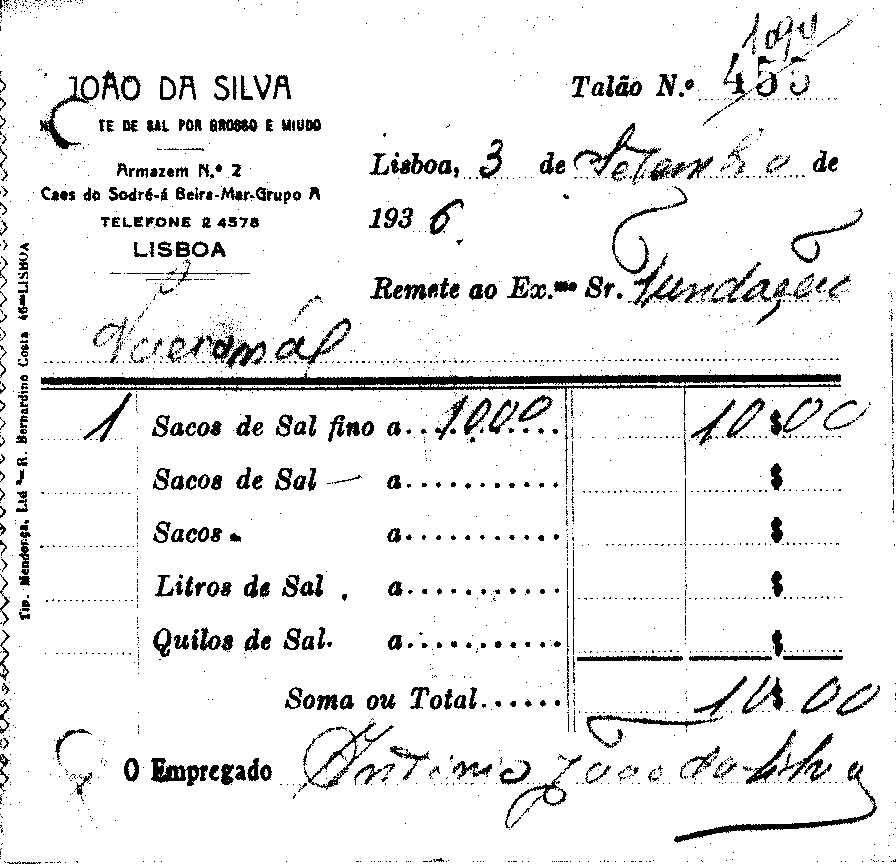 JOÃO DA SILVA
TE DE SAL POR GROSSO E MIUDO
Armazem N.º 2
Caes do Sodré-á Beira-Mar-Grupo A
TELEFONE 2 4578
LISBOA
Talão N.º 455
Lisboa, 3 de Setembro de
1936
Remete ao Ex.mo Sr. Fundação
1 Sacos de Sal fino a 10.00 10$00
Sacos de Sal — a $
Sacos a $
Litros de Sal a $
Quilos de Sal a $
Soma ou Total 10$00
O Empregado António João da Silva
Tip. Mendonça, Ltd - R. Bernardino Costa 46-LISBOA